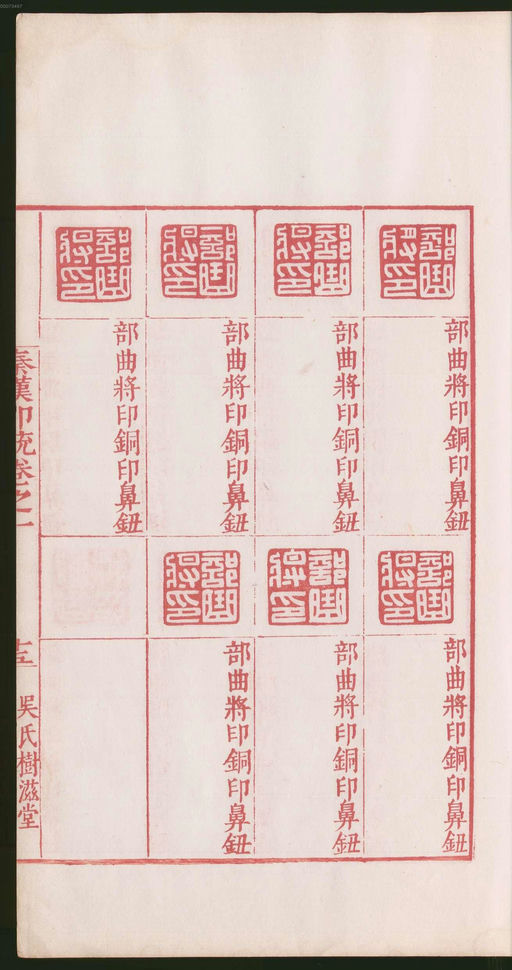 部曲將印
部曲將印銅印鼻鈕
部曲將印
部曲將印銅印鼻鈕
部曲將印
部曲將印銅印鼻鈕
部曲將印
部曲將印銅印鼻鈕
部曲將印
部曲將印銅印鼻鈕
部曲將印
部曲將印銅印鼻鈕
部曲將印
部曲將印銅印鼻鈕
秦漢印統卷之二
十五
吳氏樹滋堂
00073487